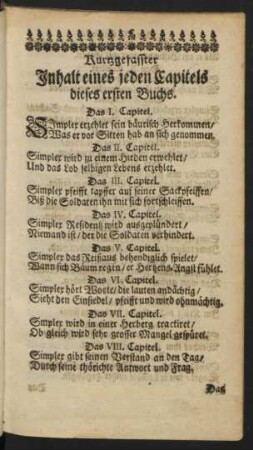 Kurtzgefasster
Inhalt eines jeden Capitels
dieses ersten Buchs.
Das I. Capitel.
Simpler erzehlet sein bäurisch Herkommen/
Was er vor Sitten hab an sich genommen.
Das II. Capitel.
Simpler wird zu einem Hirten erwehlet/
Und das Lob selbigen Lebens erzehlet.
Das III. Capitel.
Simpler pfeifft tapffer auf seiner Sackpfeiffen/
Biß die Soldaten ihn mit sich fortschleiffen.
Das IV. Capitel.
Simpler Residentz wird ausgeplündert/
Niemand ist/ der die Soldaten verhindert.
Das V. Capitel.
Simpler das Reißaus behendiglich spielet/
Wann sich Bäum regen/ er Hertzens-Angst fühlet.
Das VI. Capitel.
Simpler hört Worte/ die lauten andächtig/
Sieht den Einsiedel/ pfeifft und wird ohnmächtig.
Das VII. Capitel.
Simpler wird in einer Herberg tractiret/
Ob gleich wird sehr grosser Mangel gespüret.
Das VIII. Capitel.
Simpler gibt seinen Verstand an den Tag/
Durch seine thörichte Antwort und Frag.
Das